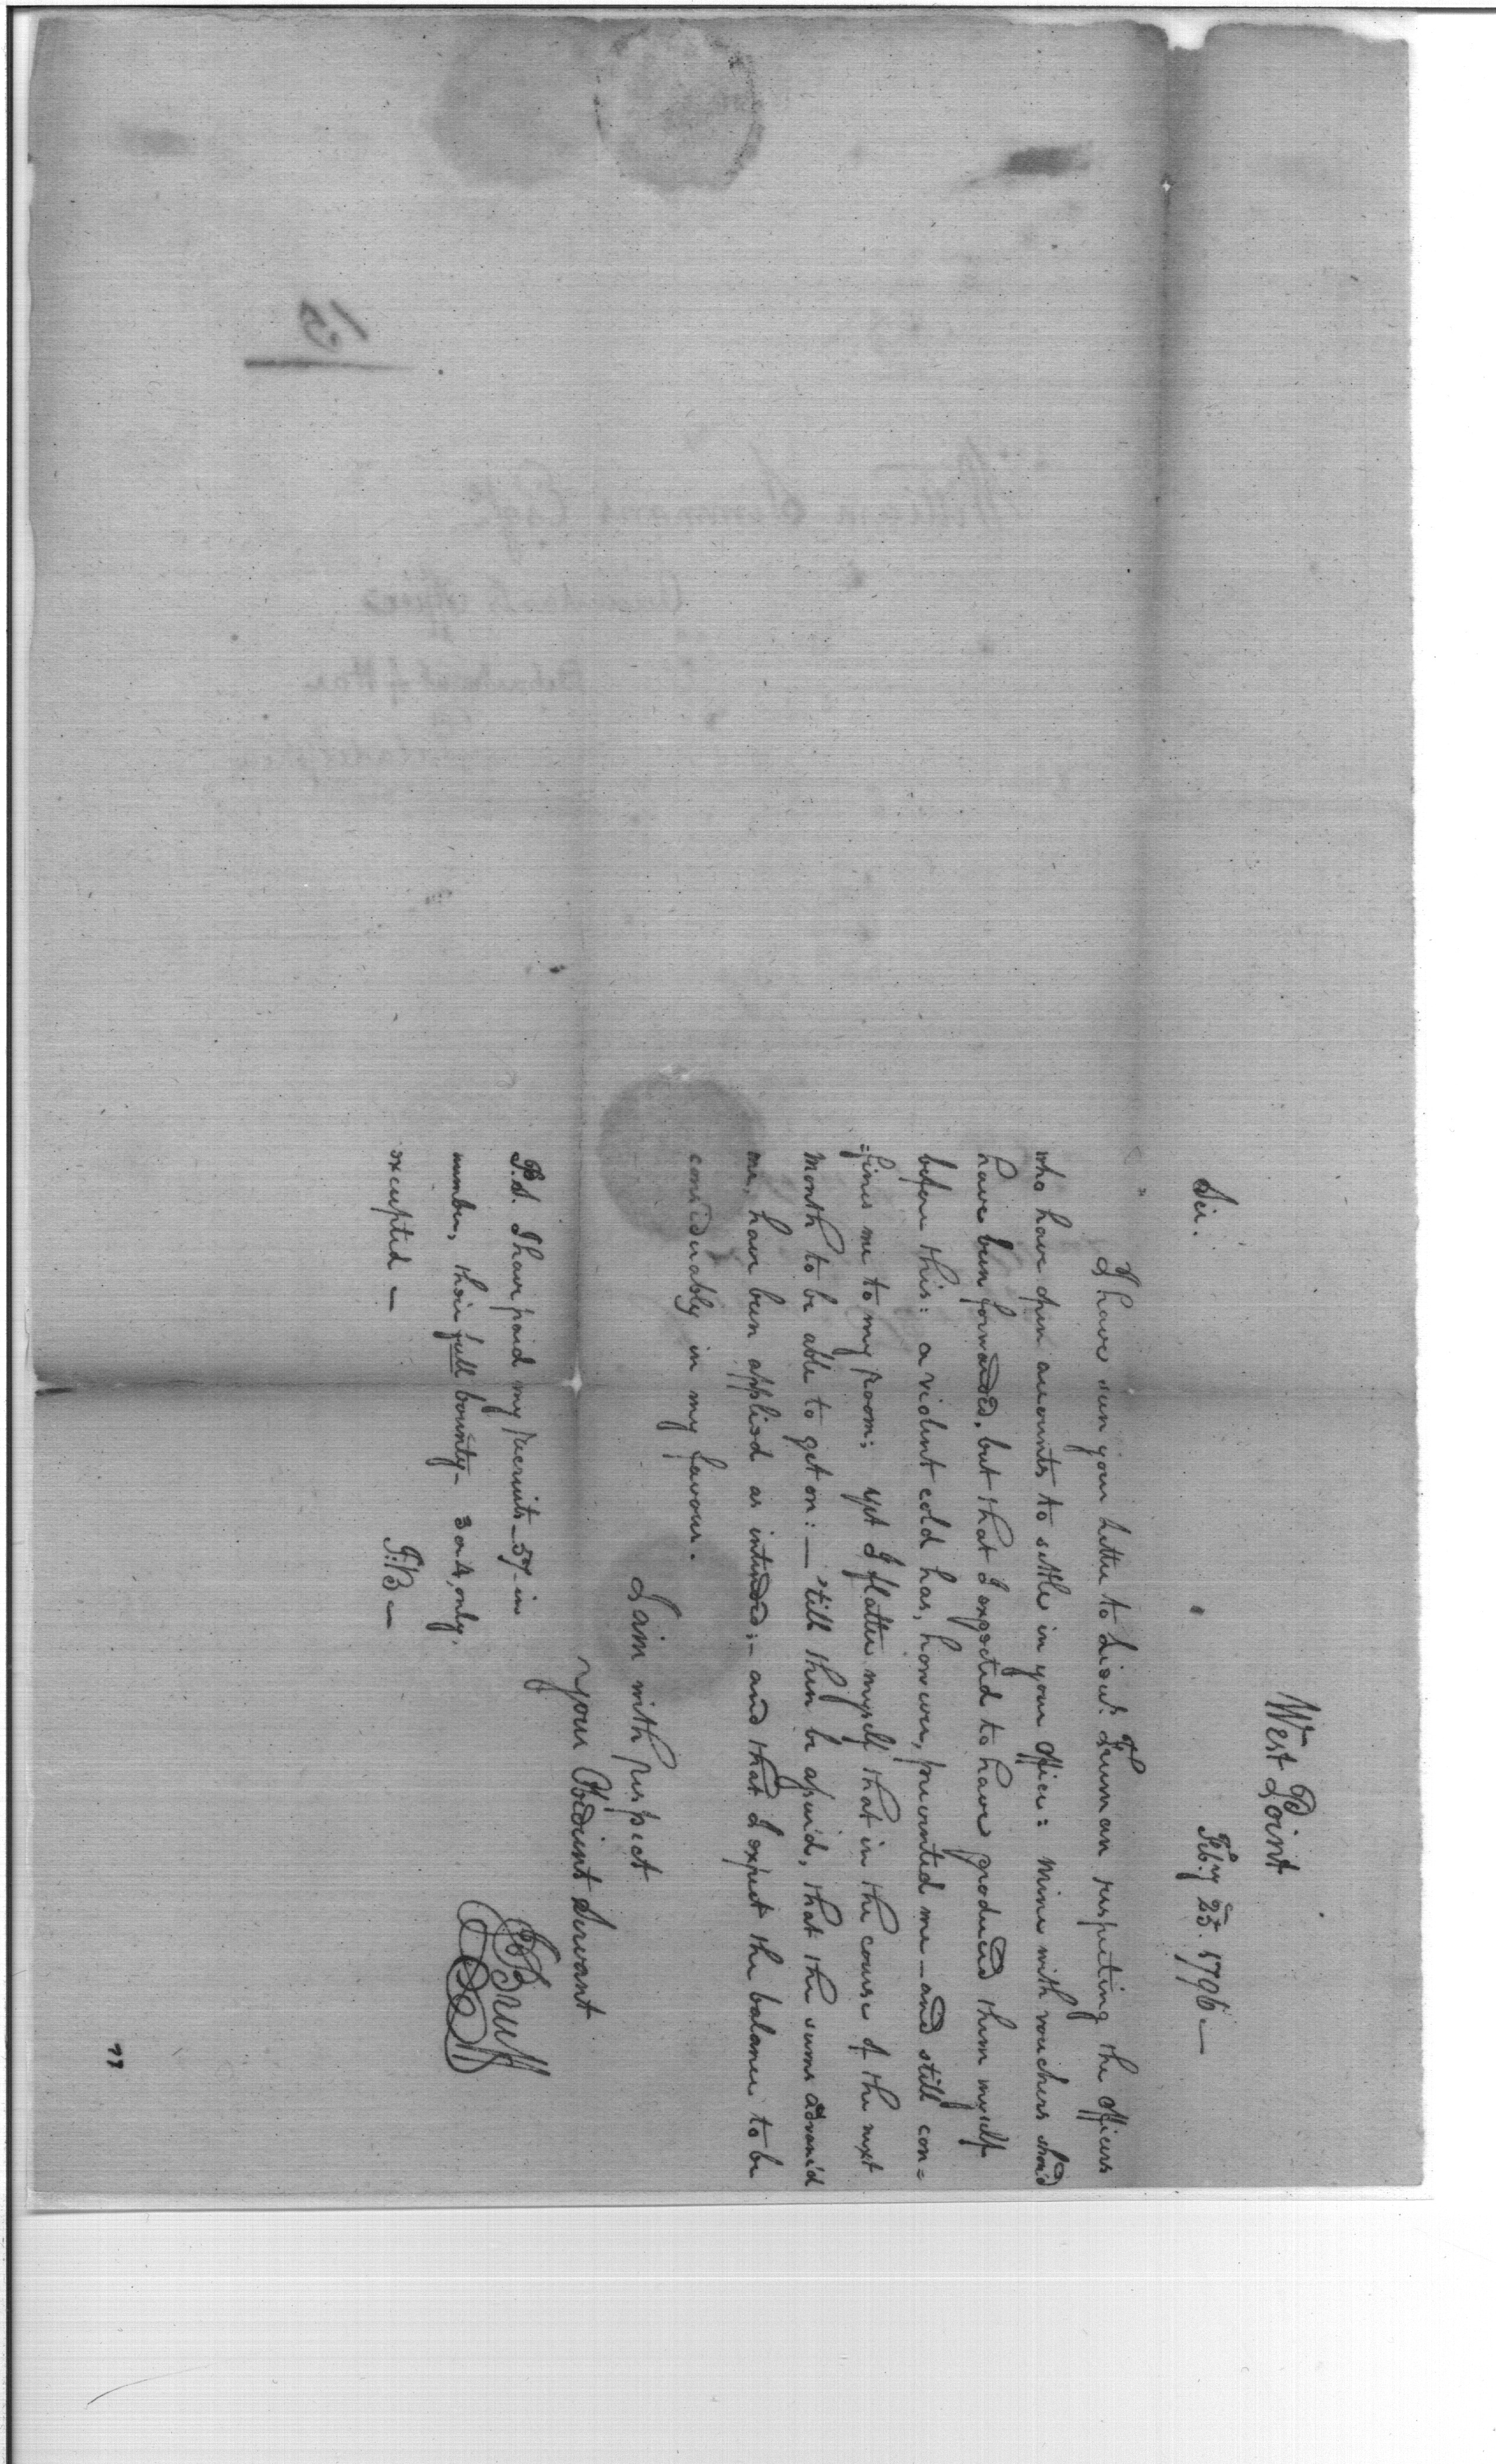 West Point
Feb.y 25. 1796 —
Sir.
I have seen your letter to Lieut. Truman respecting the officers
who have open accounts to settle in your office: mine with vouchers shou'd
have been forwarded, but that I expected to have produced them myself
before this: a violent cold has, however, prevented me — and still con=
=fines me to my room; yet I flatter myself that in the course of the next
month to be able to get on: — 'till then be assur'd, that the sums advanc'd
me, have been applied as intended; – and that I expect the balance to be
considerably in my favour.
I am with respect
your Obedient Servant
JBruff
P.S. I have paid my recruits – 57 – in
number, their full bounty – 3 or 4, only,
excepted —
J:B —
William Simmons Esqr.
Accountant's office
Department of War
Philadelphia
15
77